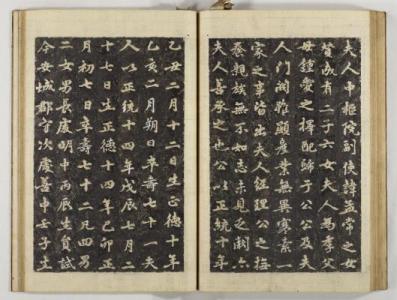 夫人中樞院副使諱孟常之女
贊成有二子六女夫人為季父
母鍾愛之擇配歸于公公及夫
人門閥雖顯產業無異寒素一
家之事皆出夫人經理公之撫
養親族無不如志未見乏闕亦
夫人善承之也公以正統十年
乙丑二月十二日生正德十年
乙亥二月朔日卒壽七十一夫
人以正統十四年戊辰七月二
十七日生正德十四年己卯正
月初七日卒壽七十二凡四男
二女男長處明中丙辰生員試
今安城郡守次處善中壬子生